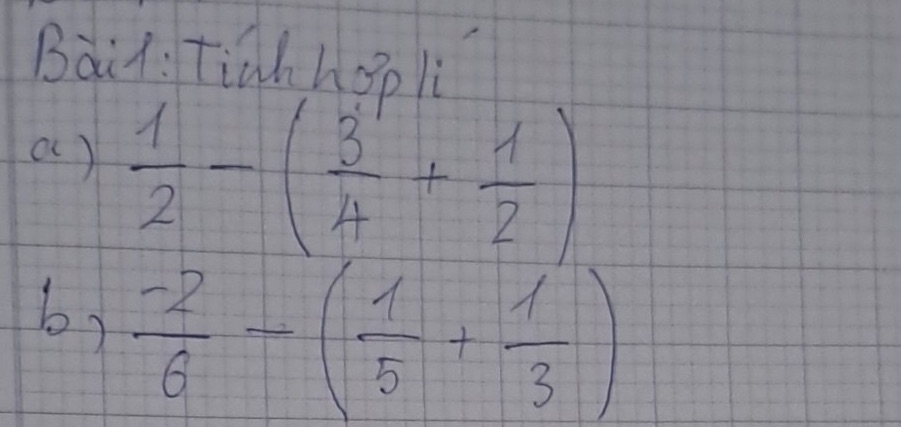 Bài 1: Tính hợp lí
a) 1/2 - (3/4 + 1/2)
b) -2/6 - (1/5 + 1/3)